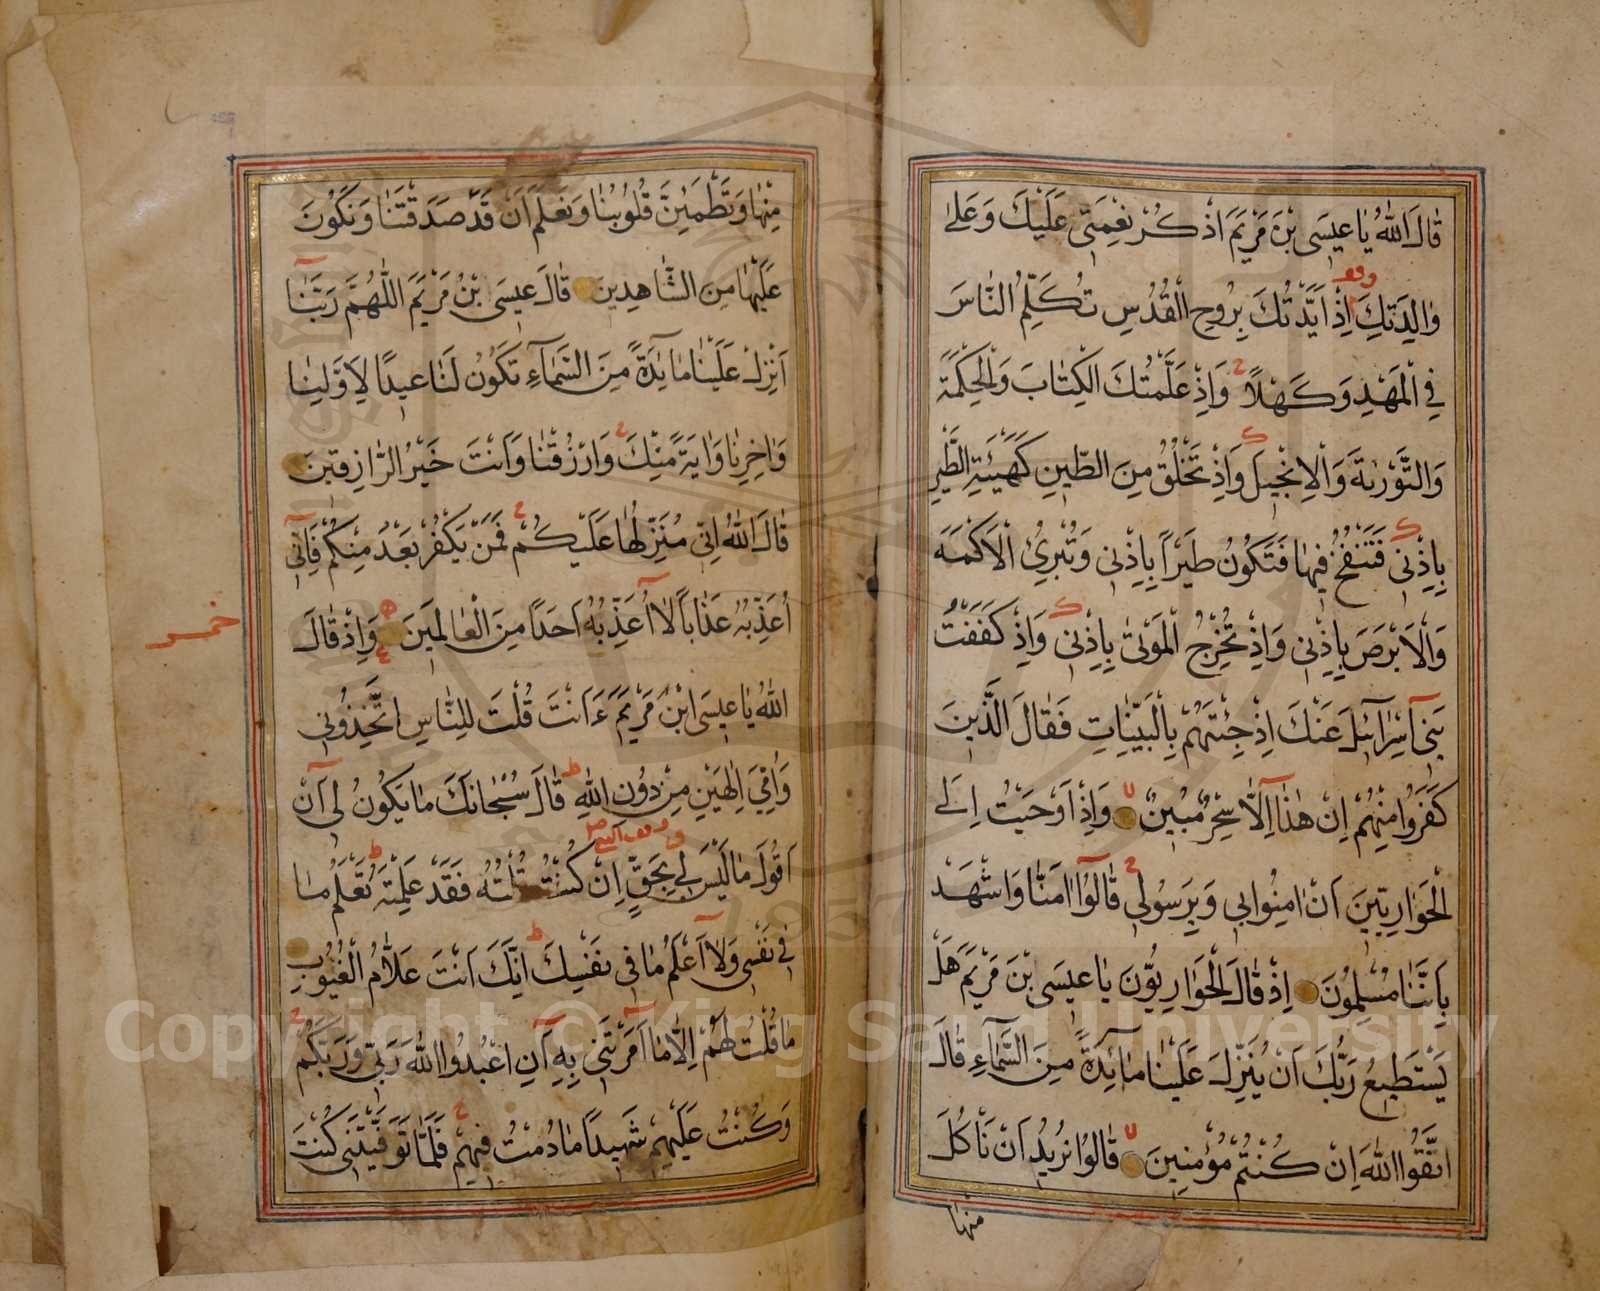 قَالَ اللهُ يَا عِيسَى بْنَ مَرْيَمَ اذْكُرْ نِعْمَتِي عَلَيْكَ وَعَلٰى
وقف
وَالِدَتِكَ اِذْ اَيَّدْتُكَ بِرُوحِ الْقُدُسِ تُكَلِّمُ النَّاسَ
فِي الْمَهْدِ وَكَهْلًا وَاِذْ عَلَّمْتُكَ الْكِتَابَ وَالْحِكْمَةَ
وَالتَّوْرٰيةَ وَالْاِنْجِيلَ وَاِذْ تَخْلُقُ مِنَ الطِّينِ كَهَيْئَةِ الطَّيْرِ
بِاِذْنِي فَتَنْفُخُ فِيهَا فَتَكُونُ طَيْرًا بِاِذْنِي وَتُبْرِئُ الْاَكْمَهَ
وَالْاَبْرَصَ بِاِذْنِي وَاِذْ تُخْرِجُ الْمَوْتٰى بِاِذْنِي وَاِذْ كَفَفْتُ
بَنِي اِسْرَآئِلَ عَنْكَ اِذْ جِئْتَهُمْ بِالْبَيِّنَاتِ فَقَالَ الَّذِينَ
كَفَرُوا مِنْهُمْ اِنْ هٰذَا اِلَّا سِحْرٌ مُبِينٌ وَاِذْ اَوْحَيْتُ اِلَى
الْحَوَارِيِّينَ اَنْ اٰمِنُوا بِي وَبِرَسُولِي قَالُوا اٰمَنَّا وَاشْهَدْ
بِاَنَّنَا مُسْلِمُونَ اِذْ قَالَ الْحَوَارِيُّونَ يَا عِيسَى بْنَ مَرْيَمَ هَلْ
يَسْتَطِيعُ رَبُّكَ اَنْ يُنَزِّلَ عَلَيْنَا مَآئِدَةً مِنَ السَّمَآءِ قَالَ
اتَّقُوا اللهَ اِنْ كُنْتُمْ مُؤْمِنِينَ قَالُوا نُرِيدُ اَنْ نَأْكُلَ
منها
مِنْهَا وَتَطْمَئِنَّ قُلُوبُنَا وَنَعْلَمَ اَنْ قَدْ صَدَقْتَنَا وَنَكُونَ
عَلَيْهَا مِنَ الشَّاهِدِينَ قَالَ عِيسَى بْنُ مَرْيَمَ اللّٰهُمَّ رَبَّنَا
اَنْزِلْ عَلَيْنَا مَآئِدَةً مِنَ السَّمَآءِ تَكُونُ لَنَا عِيدًا لِاَوَّلِنَا
وَاٰخِرِنَا وَاٰيَةً مِنْكَ وَارْزُقْنَا وَاَنْتَ خَيْرُ الرَّازِقِينَ
قَالَ اللهُ اِنِّي مُنَزِّلُهَا عَلَيْكُمْ فَمَنْ يَكْفُرْ بَعْدُ مِنْكُمْ فَاِنِّي
اُعَذِّبُهُ عَذَابًا لَا اُعَذِّبُهُ اَحَدًا مِنَ الْعَالَمِينَ وَاِذْ قَالَ
خمس
اللهُ يَا عِيسَى ابْنَ مَرْيَمَ ءَاَنْتَ قُلْتَ لِلنَّاسِ اتَّخِذُونِي
وَاُمِّيَ اِلٰهَيْنِ مِنْ دُونِ اللهِ قَالَ سُبْحَانَكَ مَا يَكُونُ لِي اَنْ
اَقُولَ مَا لَيْسَ لِي بِحَقٍّ اِنْ كُنْتُ قُلْتُهُ فَقَدْ عَلِمْتَهُ تَعْلَمُ مَا
فِي نَفْسِي وَلَا اَعْلَمُ مَا فِي نَفْسِكَ اِنَّكَ اَنْتَ عَلَّامُ الْغُيُوبِ
مَا قُلْتُ لَهُمْ اِلَّا مَا اَمَرْتَنِي بِهِ اَنِ اعْبُدُوا اللهَ رَبِّي وَرَبَّكُمْ
وَكُنْتُ عَلَيْهِمْ شَهِيدًا مَا دُمْتُ فِيهِمْ فَلَمَّا تَوَفَّيْتَنِي كُنْتَ
Copyright © King Saud University